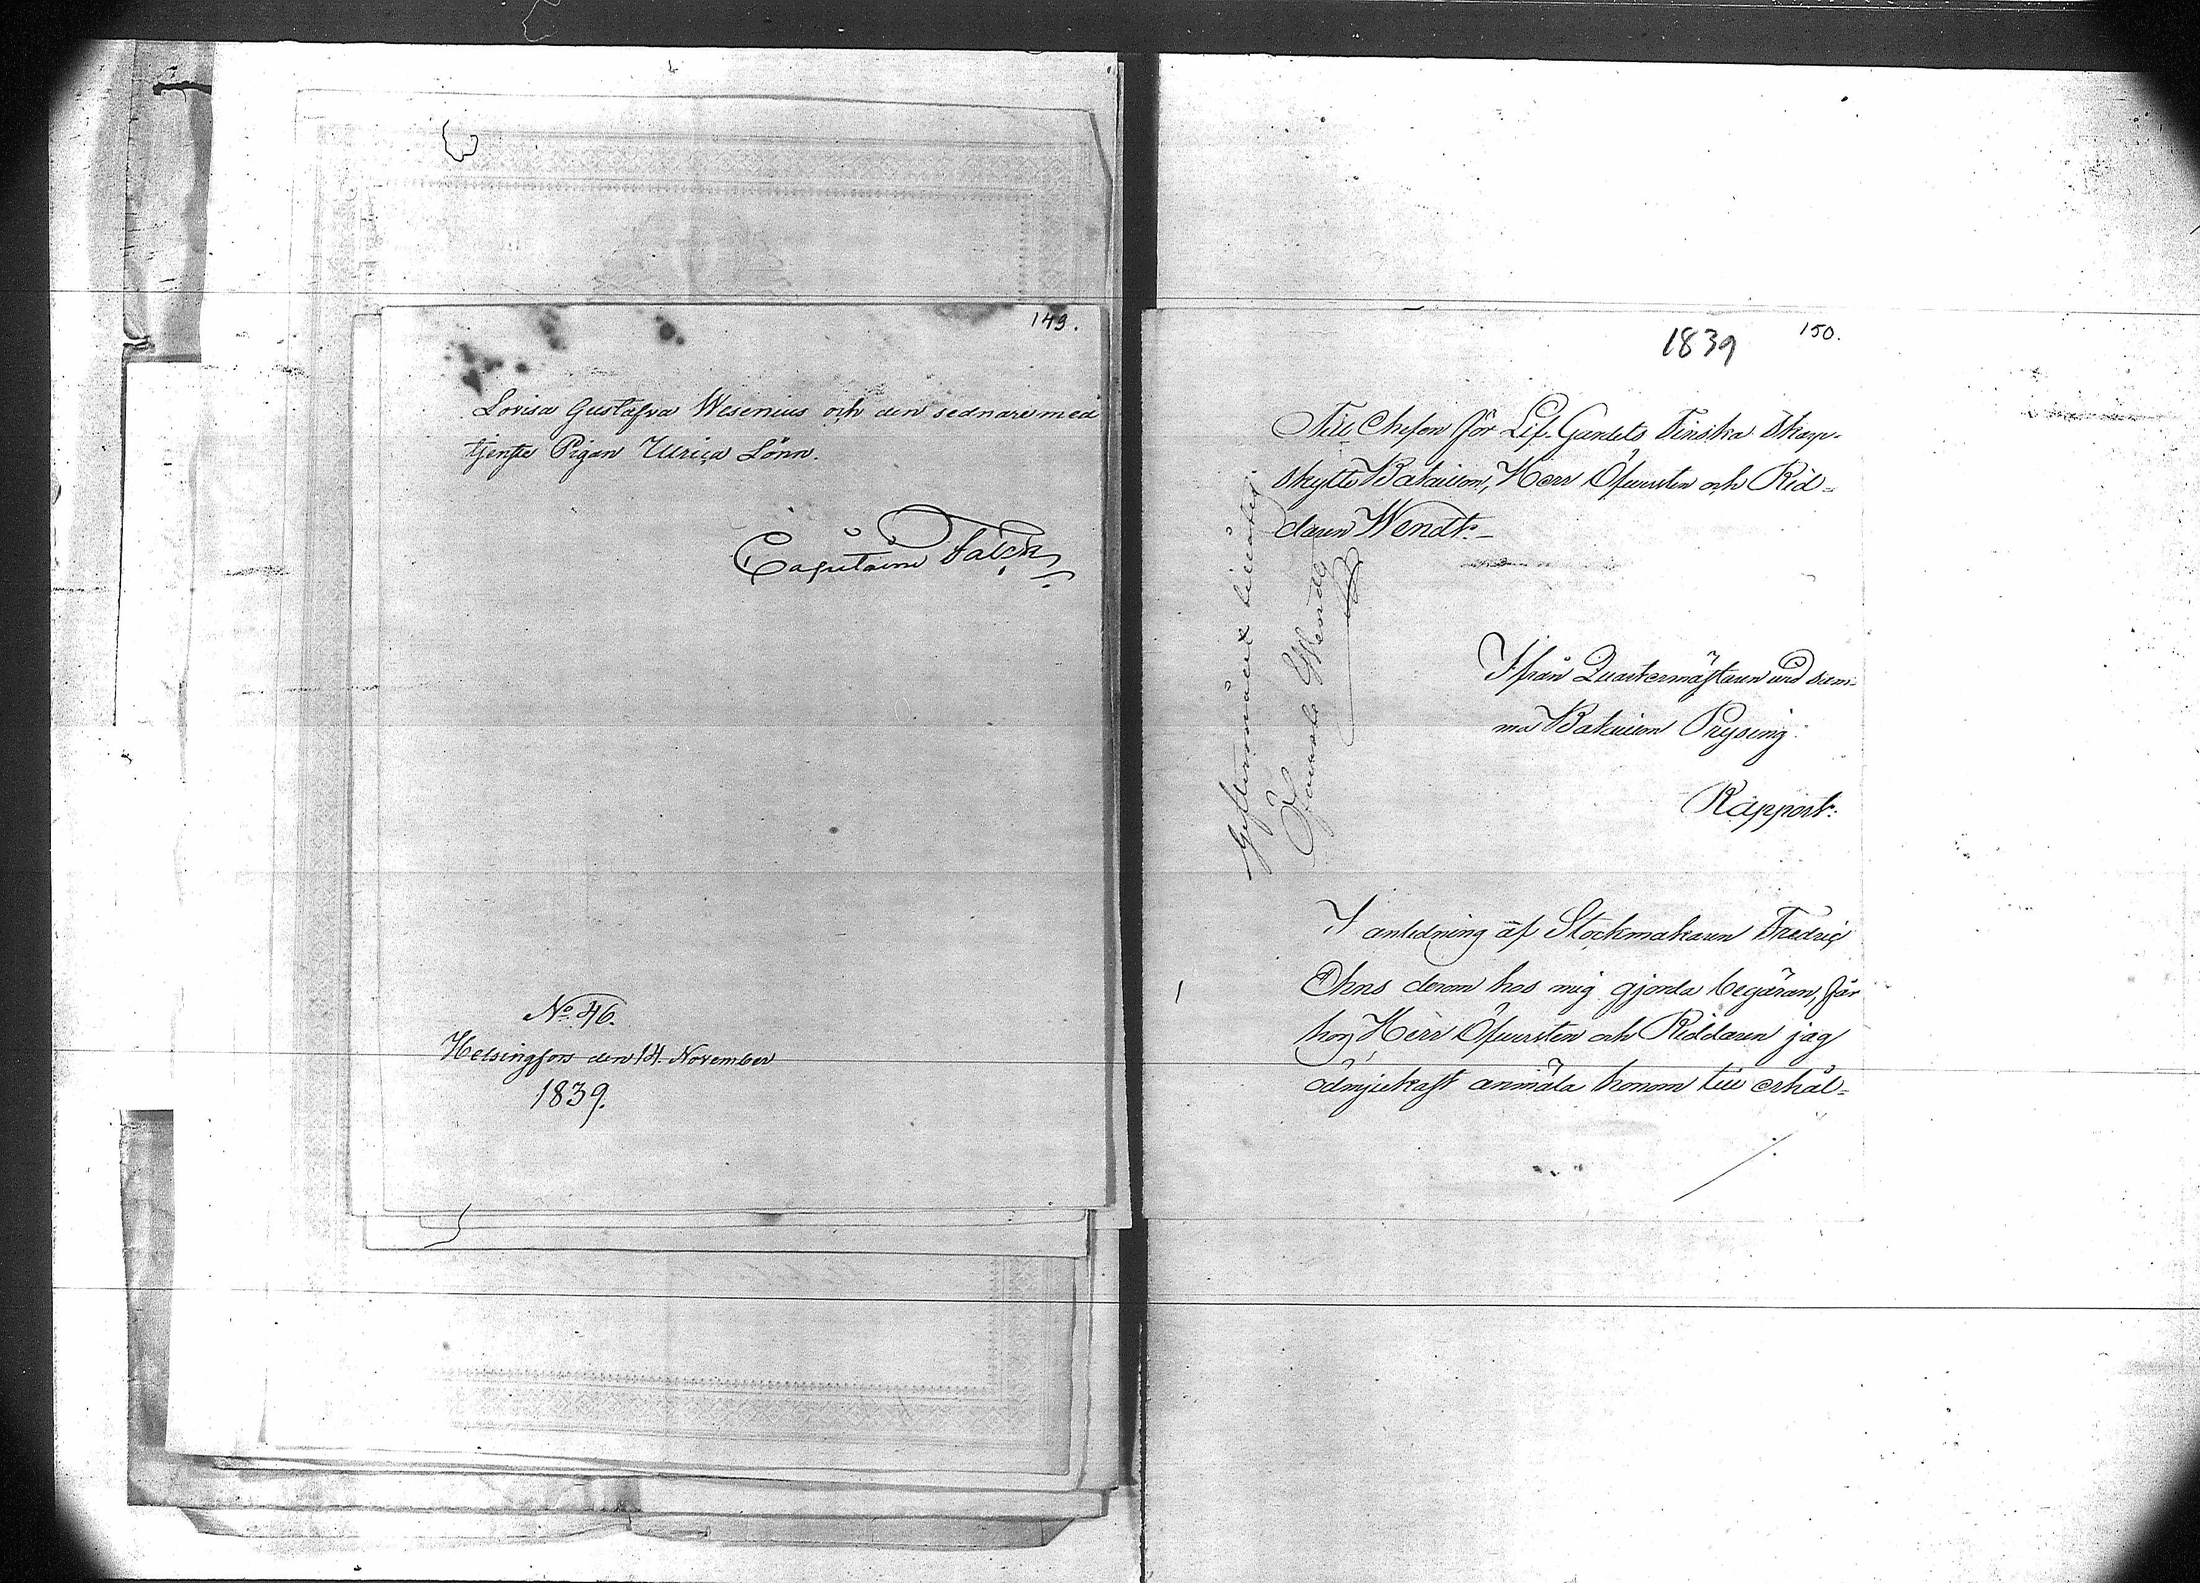 149.
Lovisa Gustafva Wesenius och den sednare med
tjenste Pigan Ulrica Lönn.
Capitaine Falck
No. 46.
Helsingfors den 14. November
1839.
1839
150.
Till Chefen för Lif-Gardets Finska Skarp-
skytte Bataillon, Herr Öfversten och Rid=
daren Wendt.
Giftermålet tillåtes
Öfverste Wendt
Ifrån Quartermästaren vid sam-
ma Bataillon Prysing.
Rapport.
I anledning af Stockmakaren Fredric
Öhns derom hos mig gjorda begäran, får
hos Herr Öfversten och Riddaren jag
ödmjukast anmäla honom till erhål=